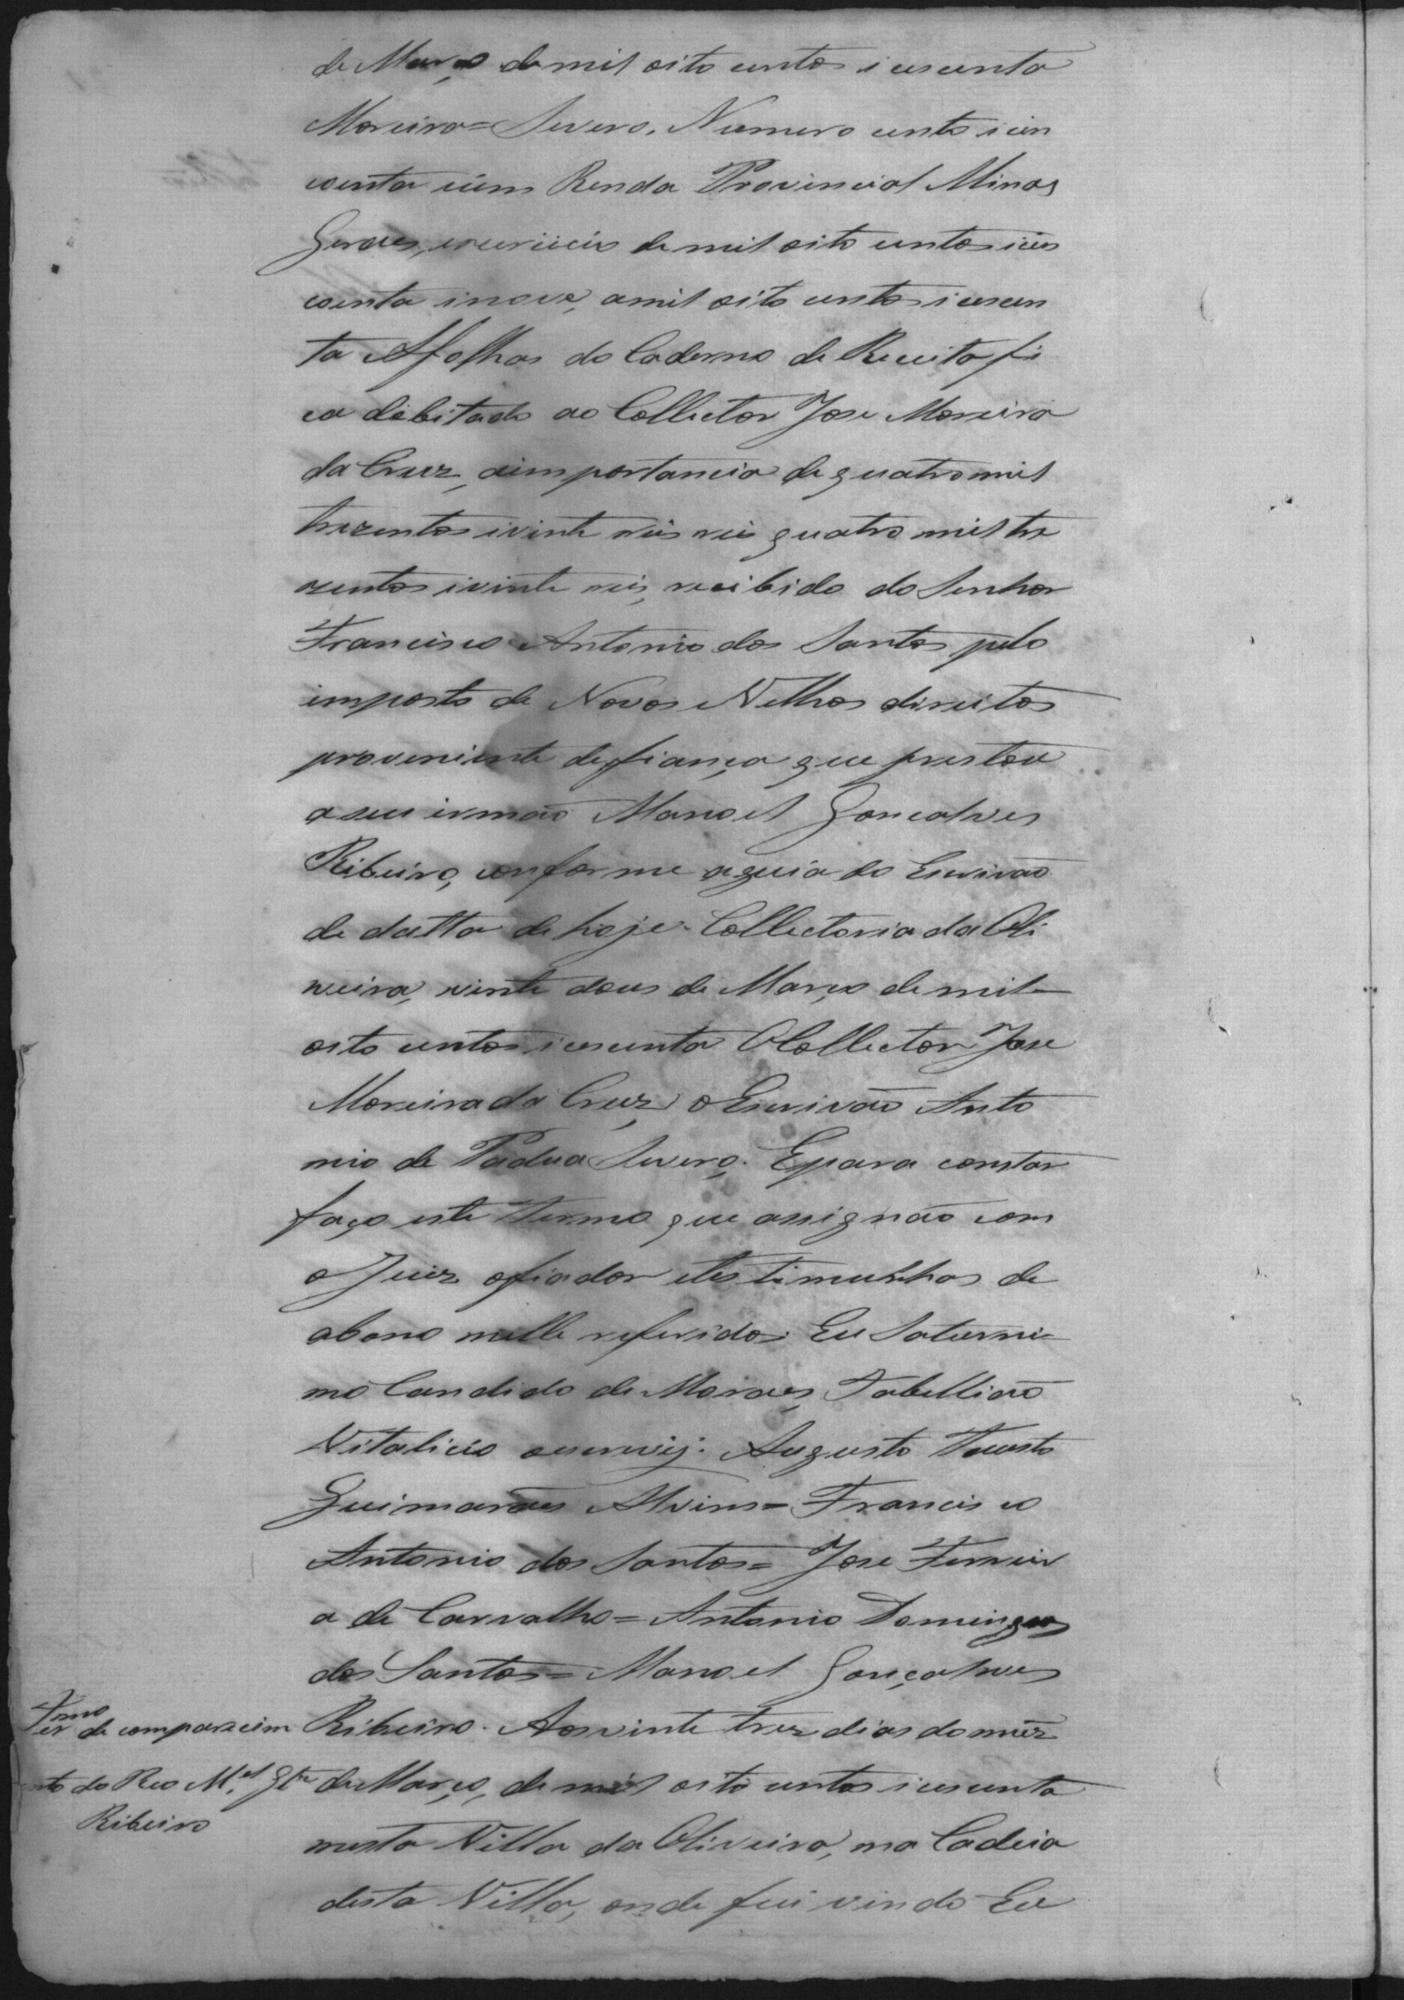 de Março de mil oito centos i cecenta
Moreira = Severo. Numero cento i cin
coenta i um Renda Provincial Minas
Geraes, exercicio de mil oito centos i cin
coenta i nove, a mil oito centos i cecen
ta Afolhas do Caderno de Receita fi
ca debitado ao Collector Jose Moreira
da Cruz, aimportancia de quatro mil
trezentos ivinte reis reis quatro mil tre
zentos ivinte reis, recibido do Senhor
Francisco Antonio dos Santos pelo
imposto de Novos eVelhos direitos
proveniente de fiança que prestou
a seu irmão Manoel Goncalves
Ribeiro, conforme aguia do Escrivão
de datta de hoje. Collectoria da Oli
veira, vinte dous de Março de mil
oito centos i cecenta OCollector Jose
Moreira da Cruz, oEscrivão Anto
nio de Padua Severo. Epara constar
faço este termo que assignão com
o Juiz ofiador etestimunhas de
abono nelle referidos. Eu Saturni
no Candido de Moraes, Tabellião
Vitalicio oescrevij. Augusto Fausto
Guimarães Alvim = Francisco
Antonio dos Santos = Jose Ferreir
a de Carvalho = Antonio Domingos
dos Santos = Manoel Gonçalves
Ribeiro. Aosvinte trez dias do mêz
de Março, de mil oito centos i cecenta
nesta Villa da Oliveira, na Cadeia
desta Villa, onde fui vindo Eu
Termo de comparecim
ento do Reo M.el Glz
Ribeiro